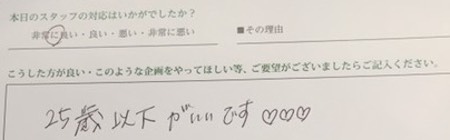 本日のスタッフの対応はいかがでしたか？
非常に良い・良い・悪い・非常に悪い
■その理由
こうした方が良い・このような企画をやってほしい等、ご要望がございましたらご記入ください。
25歳以下がいいです♡♡♡